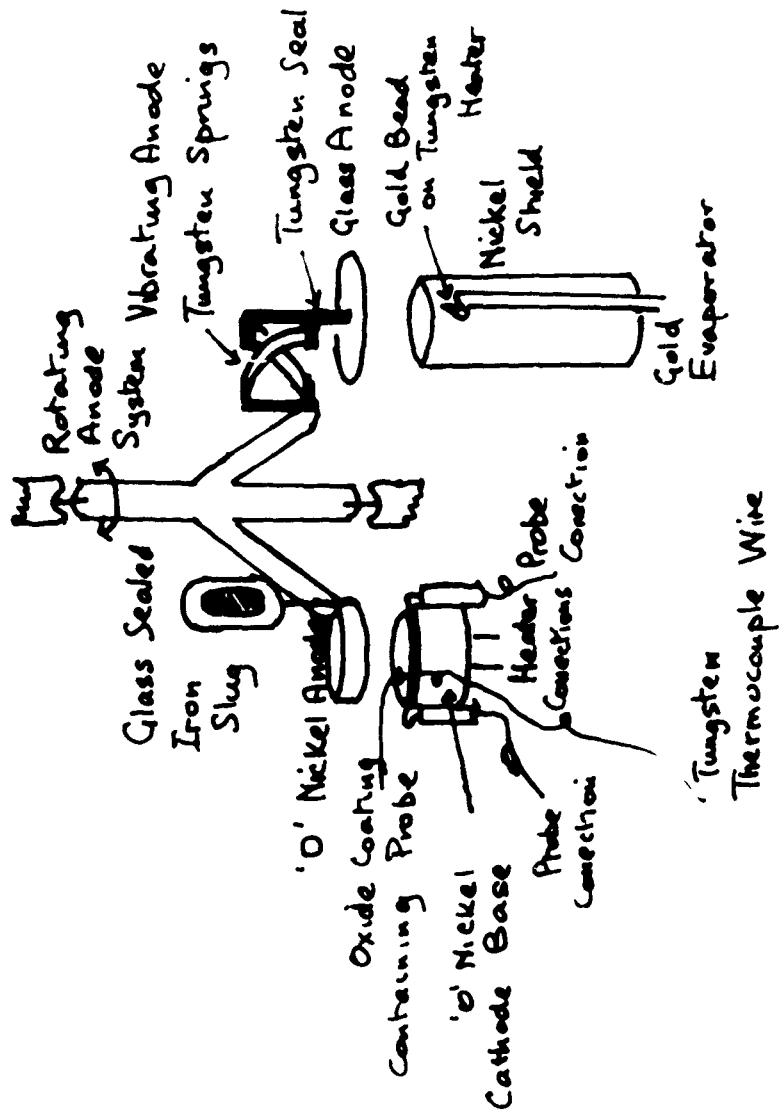 Rotating
Anode
System
Vibrating Anode
Tungsten Springs
Tungsten Seal
Glass Anode
Gold Bead
on Tungsten
Heater
Nickel
Shield
Gold
Evaporator
Glass Sealed
Iron
Slug
'O' Nickel Anode
Oxide Coating
Containing Probe
'O' Nickel
Cathode Base
Probe
Conection
Heater
Conections
Probe
Conection
'Tungsten
Thermocouple Wire